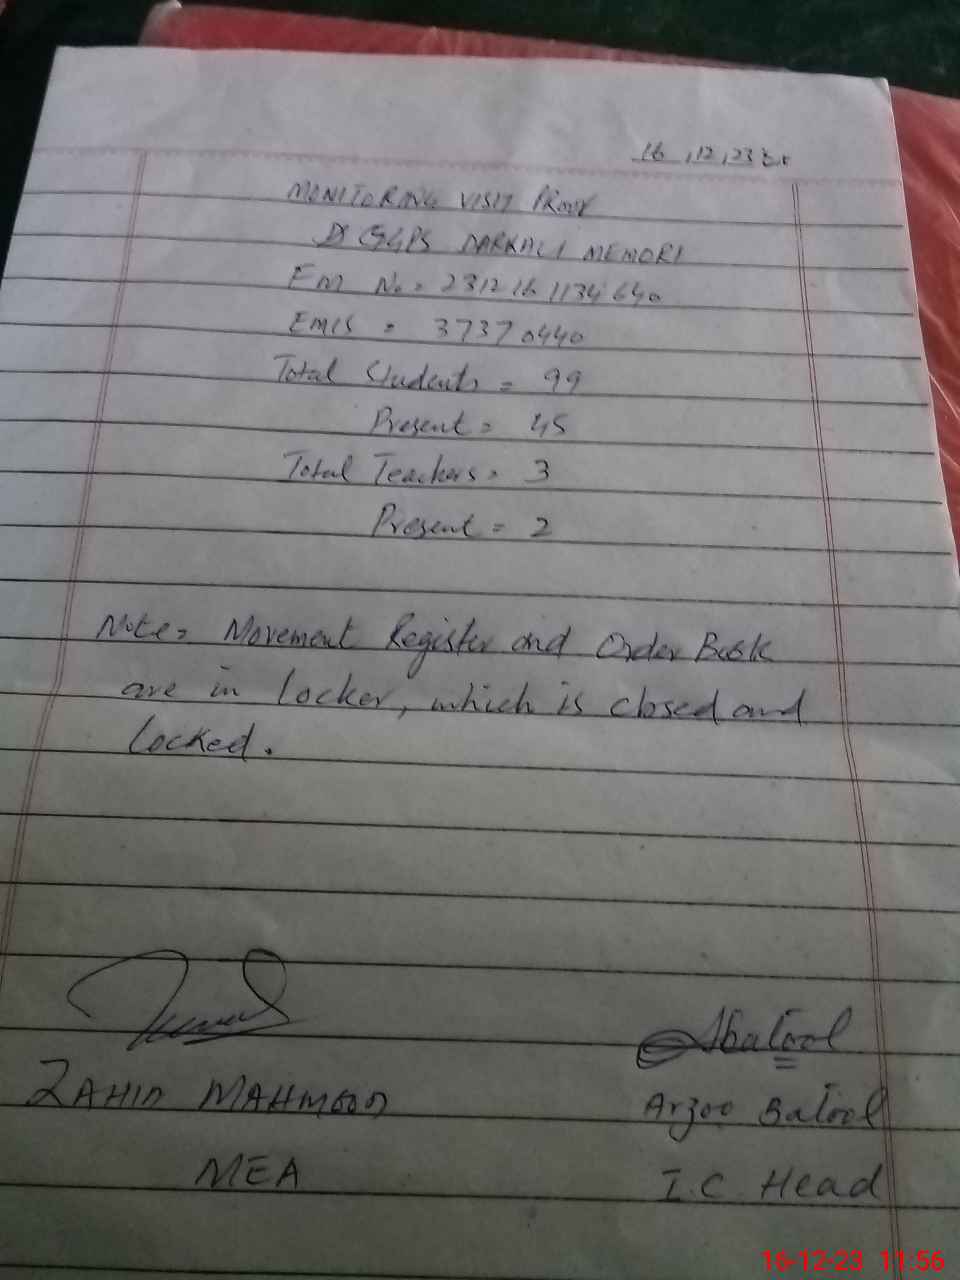 16,12,23
MONITORING VISIT PROOF
GGPS DARKALI MEMORI
EM No = 231216 1134640
EMIS = 37370440
Total Students = 99
Present = 45
Total Teachers = 3
Present = 2
Note = Movement Register and Order Book
are in locker, which is closed and
locked.
Abatool
ZAHID MAHMOOD
Arzoo Batool
MEA
I.C Head
16-12-23 11:56